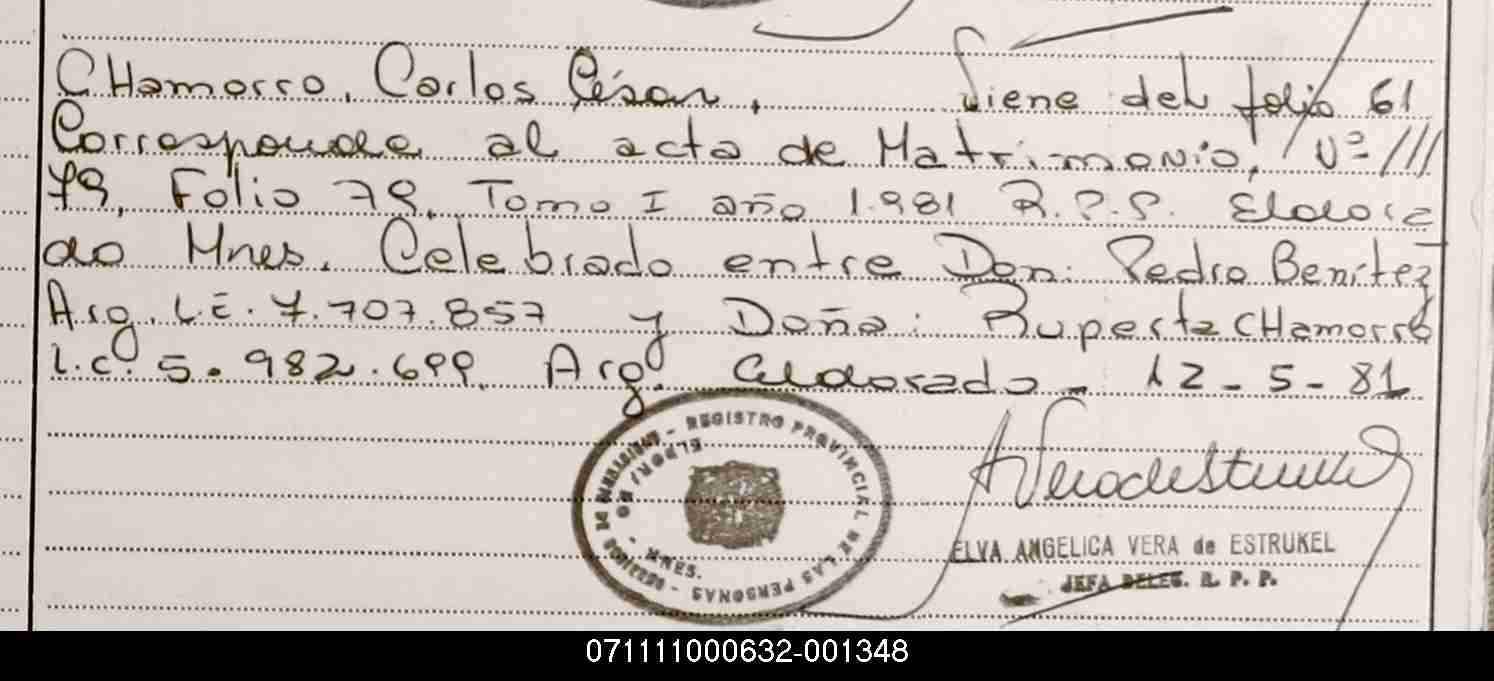 CHamorro, Carlos César, Viene del folio 61
Corresponde al acta de Matrimonio, Nº
79, Folio 79, Tomo I año 1.981 R.P.P. Eldora
do Mnes. Celebrado entre Don: Pedro Benítez
Arg. L.E. 7.707.857 y Doña: Ruperta CHamorro
L.C. 5.982.699. Arg. Eldorado - 12-5-81
REGISTRO PROVINCIAL DE LAS PERSONAS
ELDORADO - MNES.
ELVA ANGELICA VERA de ESTRUKEL
JEFA DELEG. R. P. P.
071111000632-001348